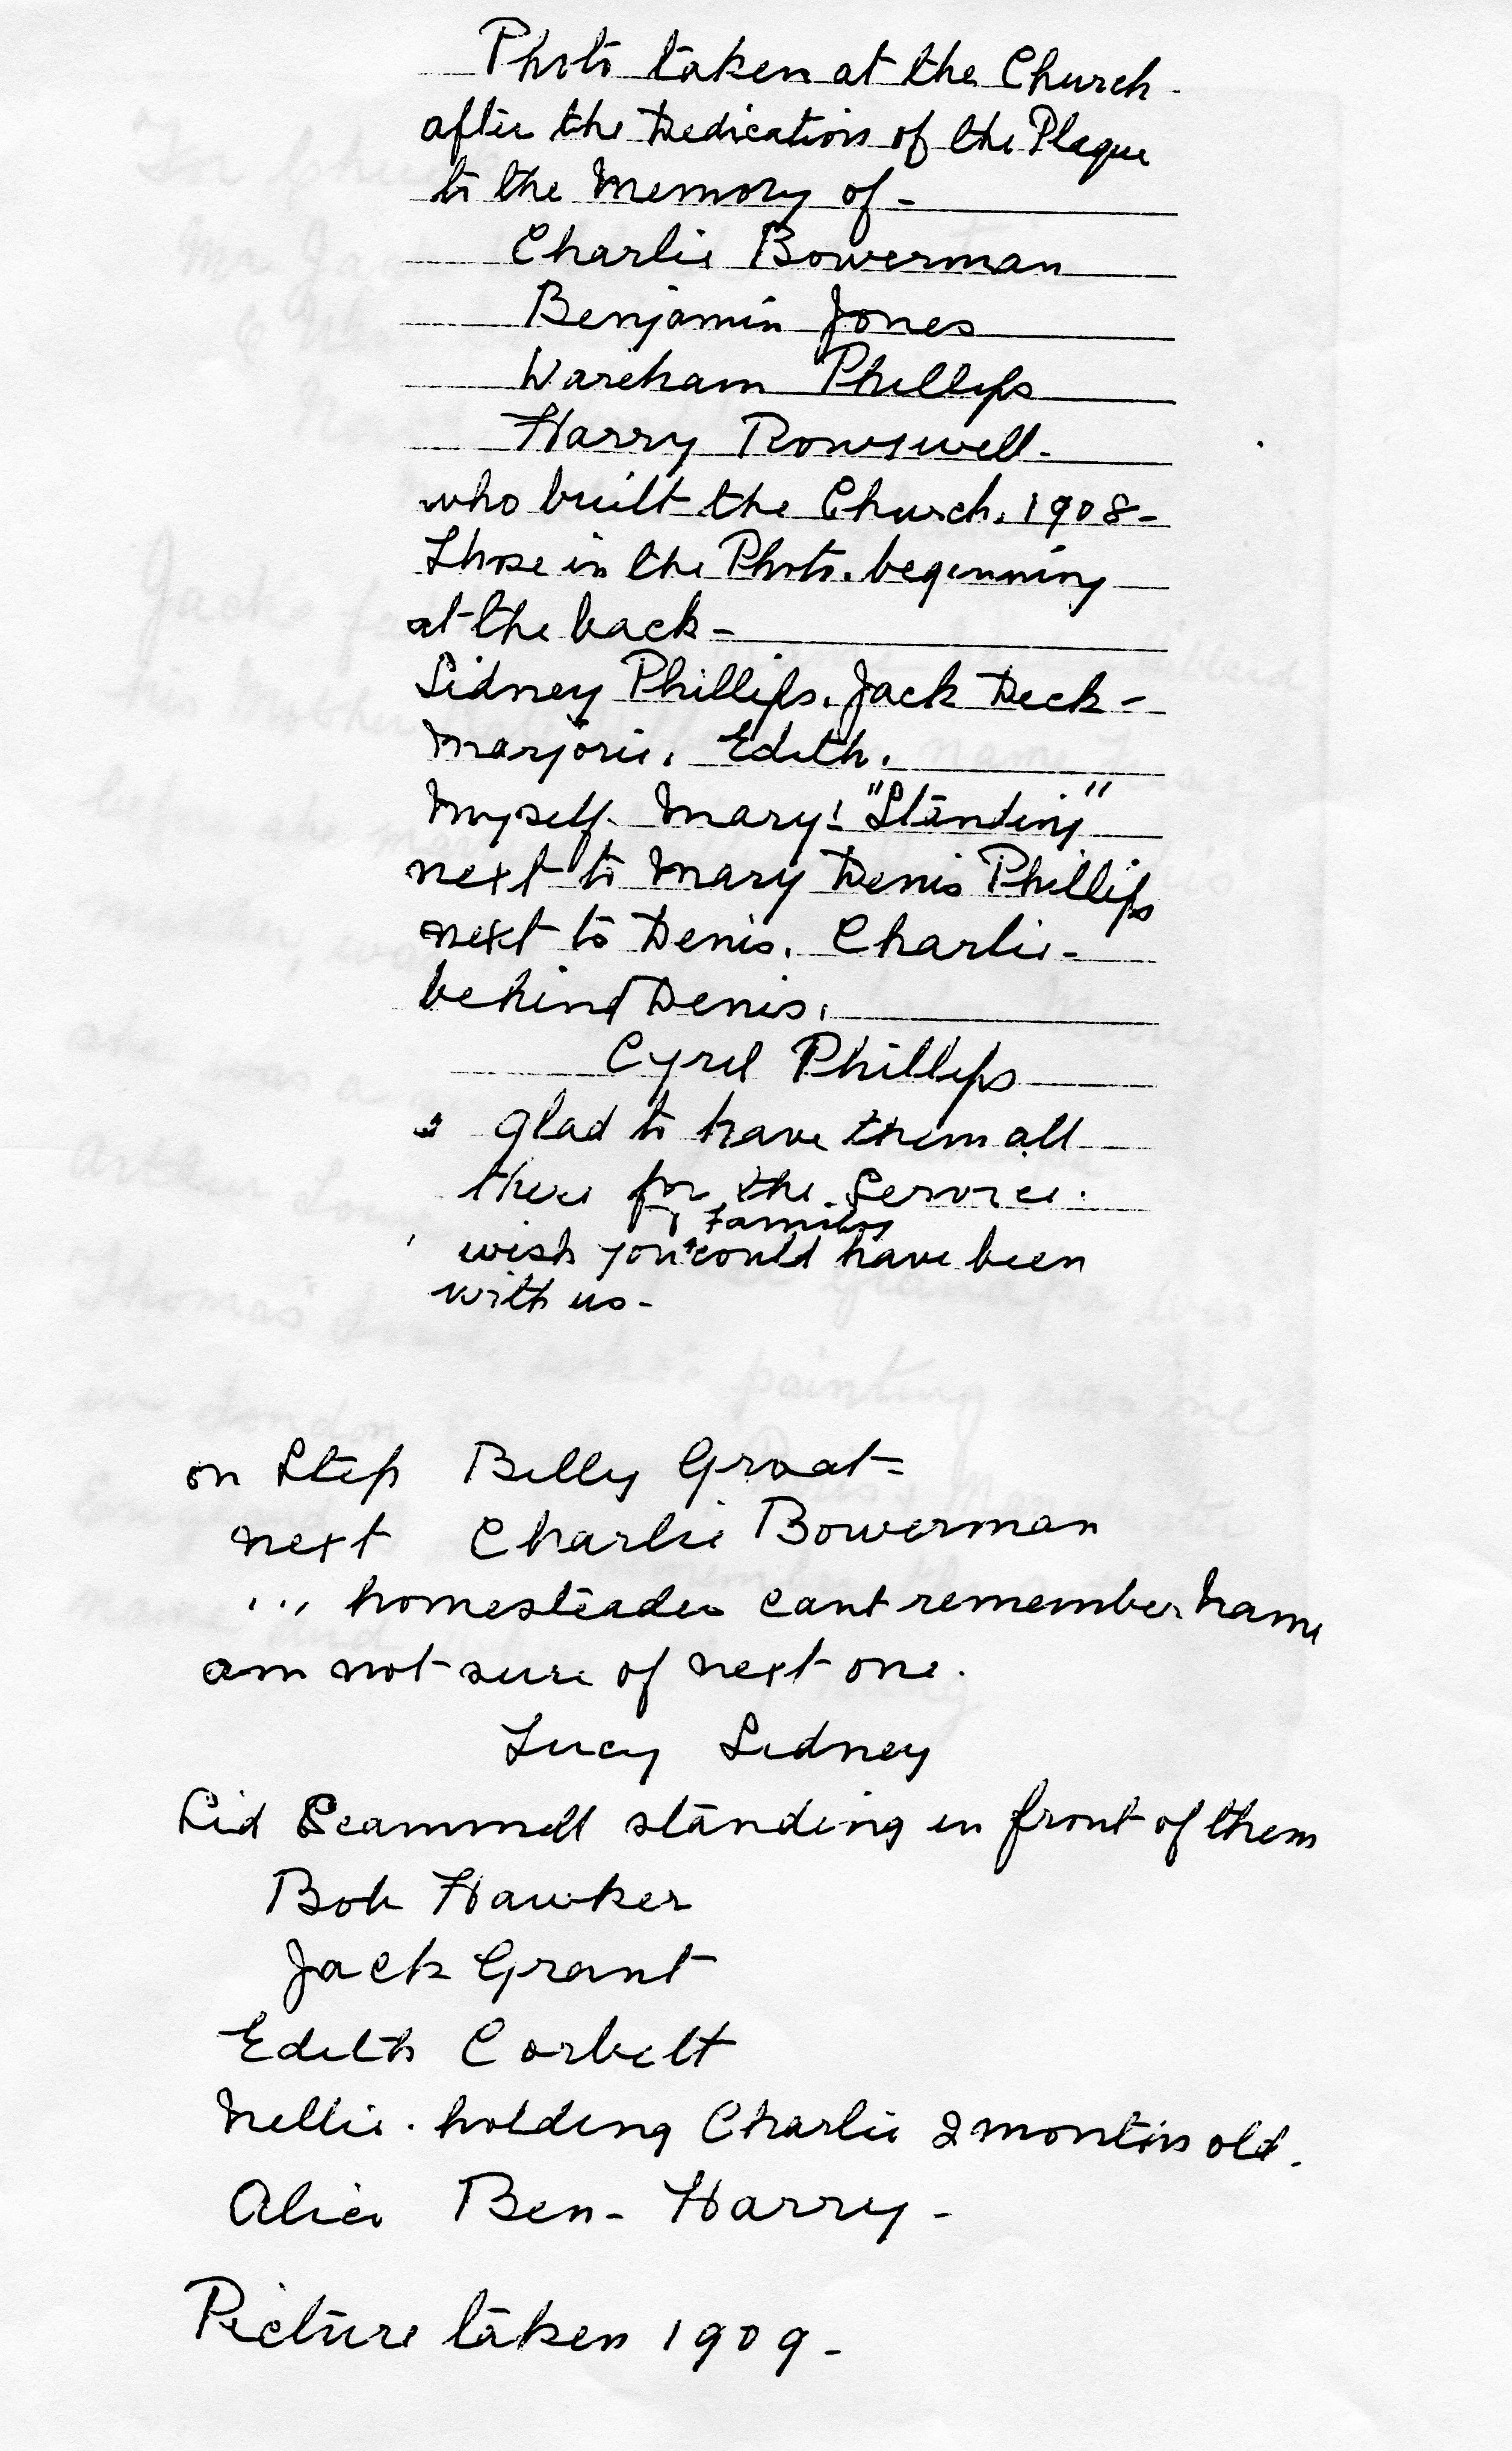 Photo taken at the Church -
after the Dedication of the Plaque
to the Memory of -
Charlie Bowerman
Benjamin Jones
Wareham Phillips
Harry Rowswell -
who built the Church. 1908 -
Those in the Photo. beginning
at the back -
Sidney Phillips. Jack Deck -
Marjorie. Edith.
Myself. Mary! "Standing"
next to Mary Denis Phillips
next to Denis. Charlie -
behind Denis.
Cyril Phillips
glad to have them all
there for the Service.
& Family
wish you could have been
with us -
on Step Billy Groat =
next Charlie Bowerman
... homesteader cant remember name
am not sure of next one.
Lucy Sidney
Sid Scammell standing in front of them
Bob Hawker
Jack Grant
Edith Corbett
Nellie. holding Charlie 2 months old.
Alice Ben - Harry -
Picture taken 1909 -